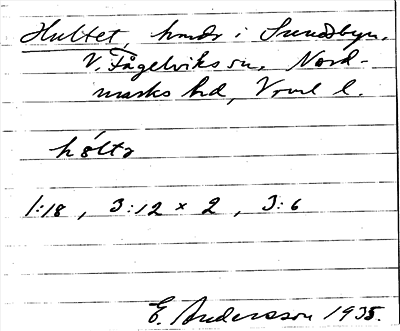 Hultet, hmdr i Sundsbyn.
V. Fågelviks sn. Nord-
marks hd, Vrml l.
hø̀ltɜ
1:18, 3:12 × 2, 3:6
E. Andersson 1935.